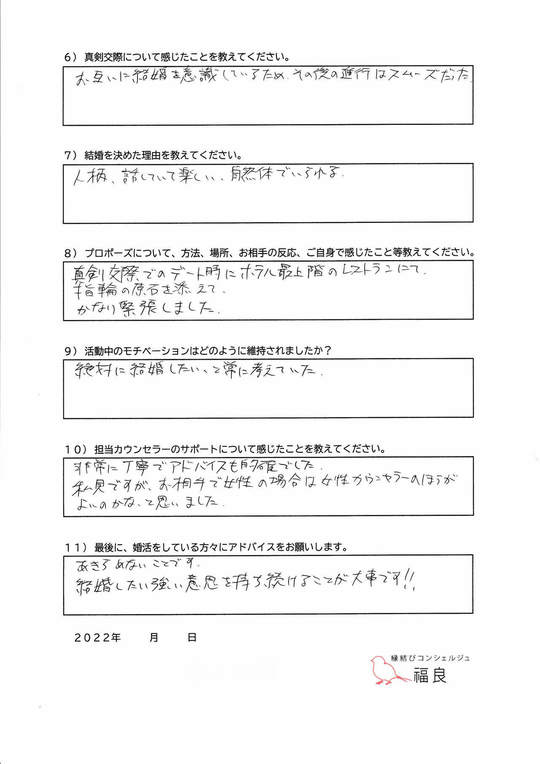 6）真剣交際について感じたことを教えてください。
お互いに結婚を意識しているため、その後の進行はスムーズだった
7）結婚を決めた理由を教えてください。
人柄、話していて楽しい、自然体でいられる。
8）プロポーズについて、方法、場所、お相手の反応、ご自身で感じたこと等教えてください。
真剣交際でのデート時にホテル最上階のレストランにて。
指輪の原石を添えて。
かなり緊張しました。
9）活動中のモチベーションはどのように維持されましたか？
絶対に結婚したい、と常に考えていた。
10）担当カウンセラーのサポートについて感じたことを教えてください。
非常に丁寧でアドバイスも的確でした。
私見ですが、お相手で女性の場合は女性カウンセラーのほうが
よいのかな、と思いました。
11）最後に、婚活をしている方々にアドバイスをお願いします。
あきらめないことです。
結婚したい強い意思を持ち続けることが大事です!!
2022年　　月　　日
縁結びコンシェルジュ
福良